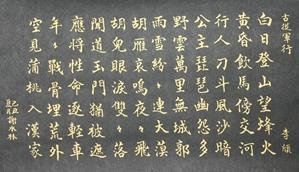 古從軍行 李頎
白日登山望烽火
黃昏飲馬傍交河
行人刁斗風沙暗
公主琵琶幽怨多
野雲萬里無城郭
雨雪紛々連大漠
胡雁哀鳴夜々飛
胡兒眼淚雙々落
聞道玉門猶被遮
應將性命逐輕車
年々戰骨埋荒外
空見蒲桃入漢家
謝水林